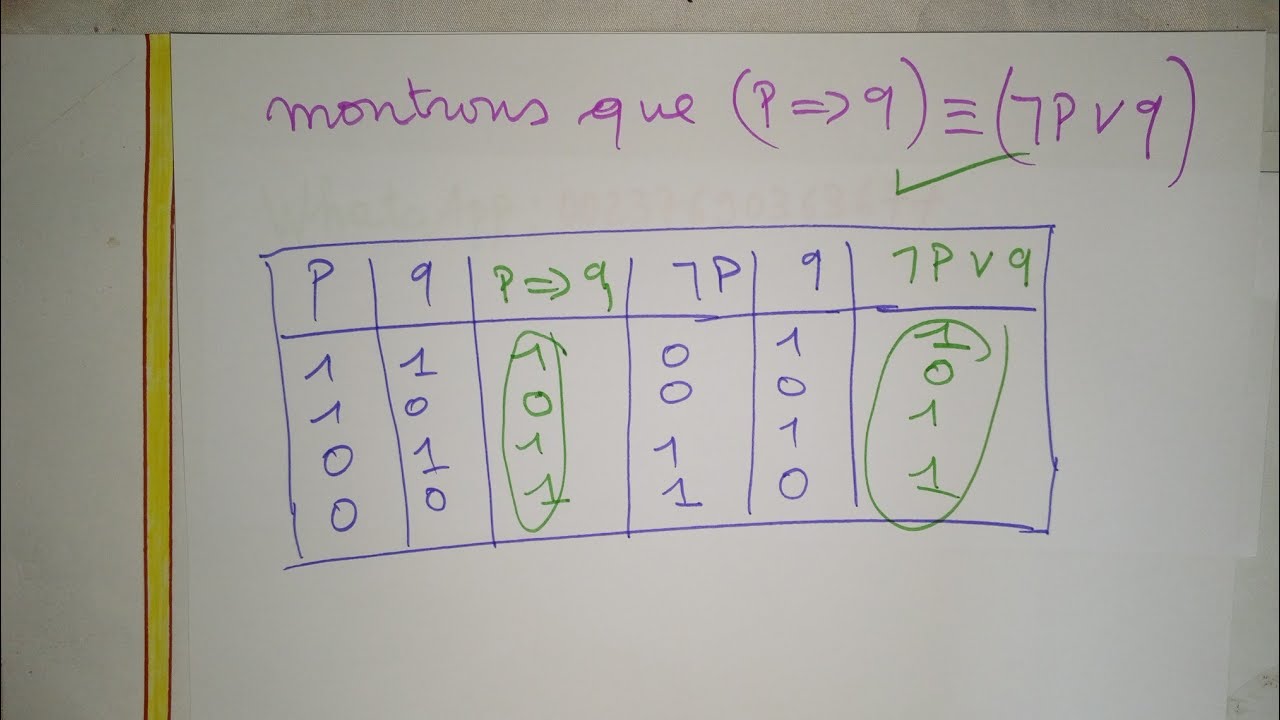 montrons que (P => q) ≡ (¬P ∨ q)
P q P => q ¬P q ¬P ∨ q
1 1 1 0 1 1
1 0 0 0 0 0
0 1 1 1 1 1
0 0 1 1 0 1